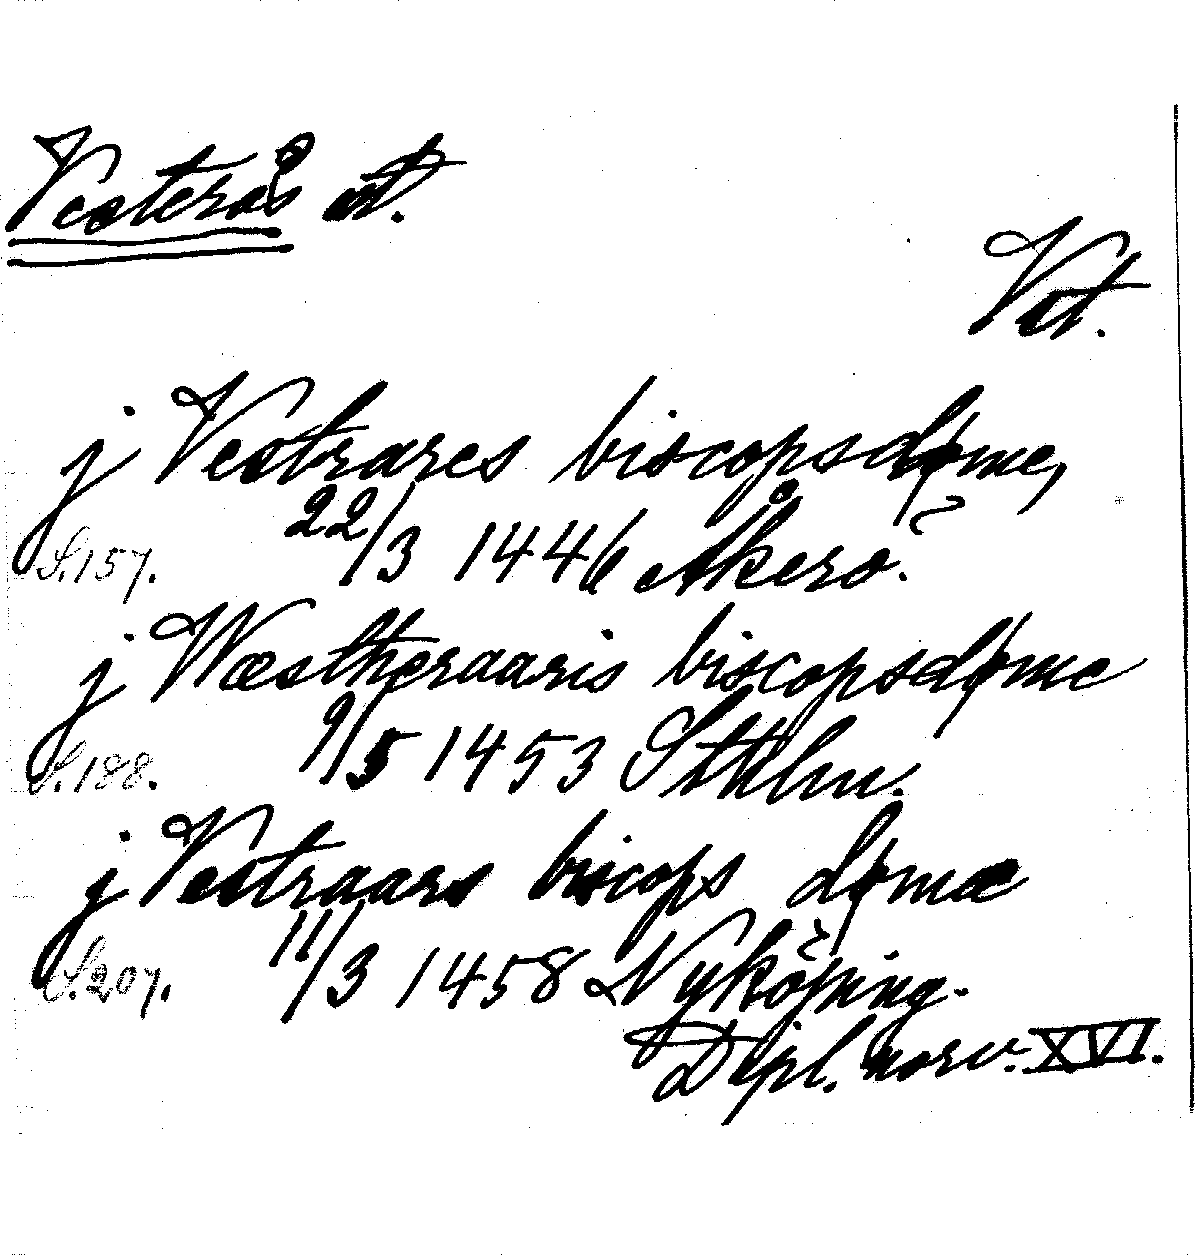 Västerås st.
Vst.
j Vestrares biscopsdøme,
S. 157. 22/3 1446 Åkerö?
j Wæstheraaris biscopsdøme
S. 188. 9/5 1453 Sthlm.
j Vestraars biscops dømæ
S. 207. 11/3 1458 Nyköping.
Dipl. norv. XVI.